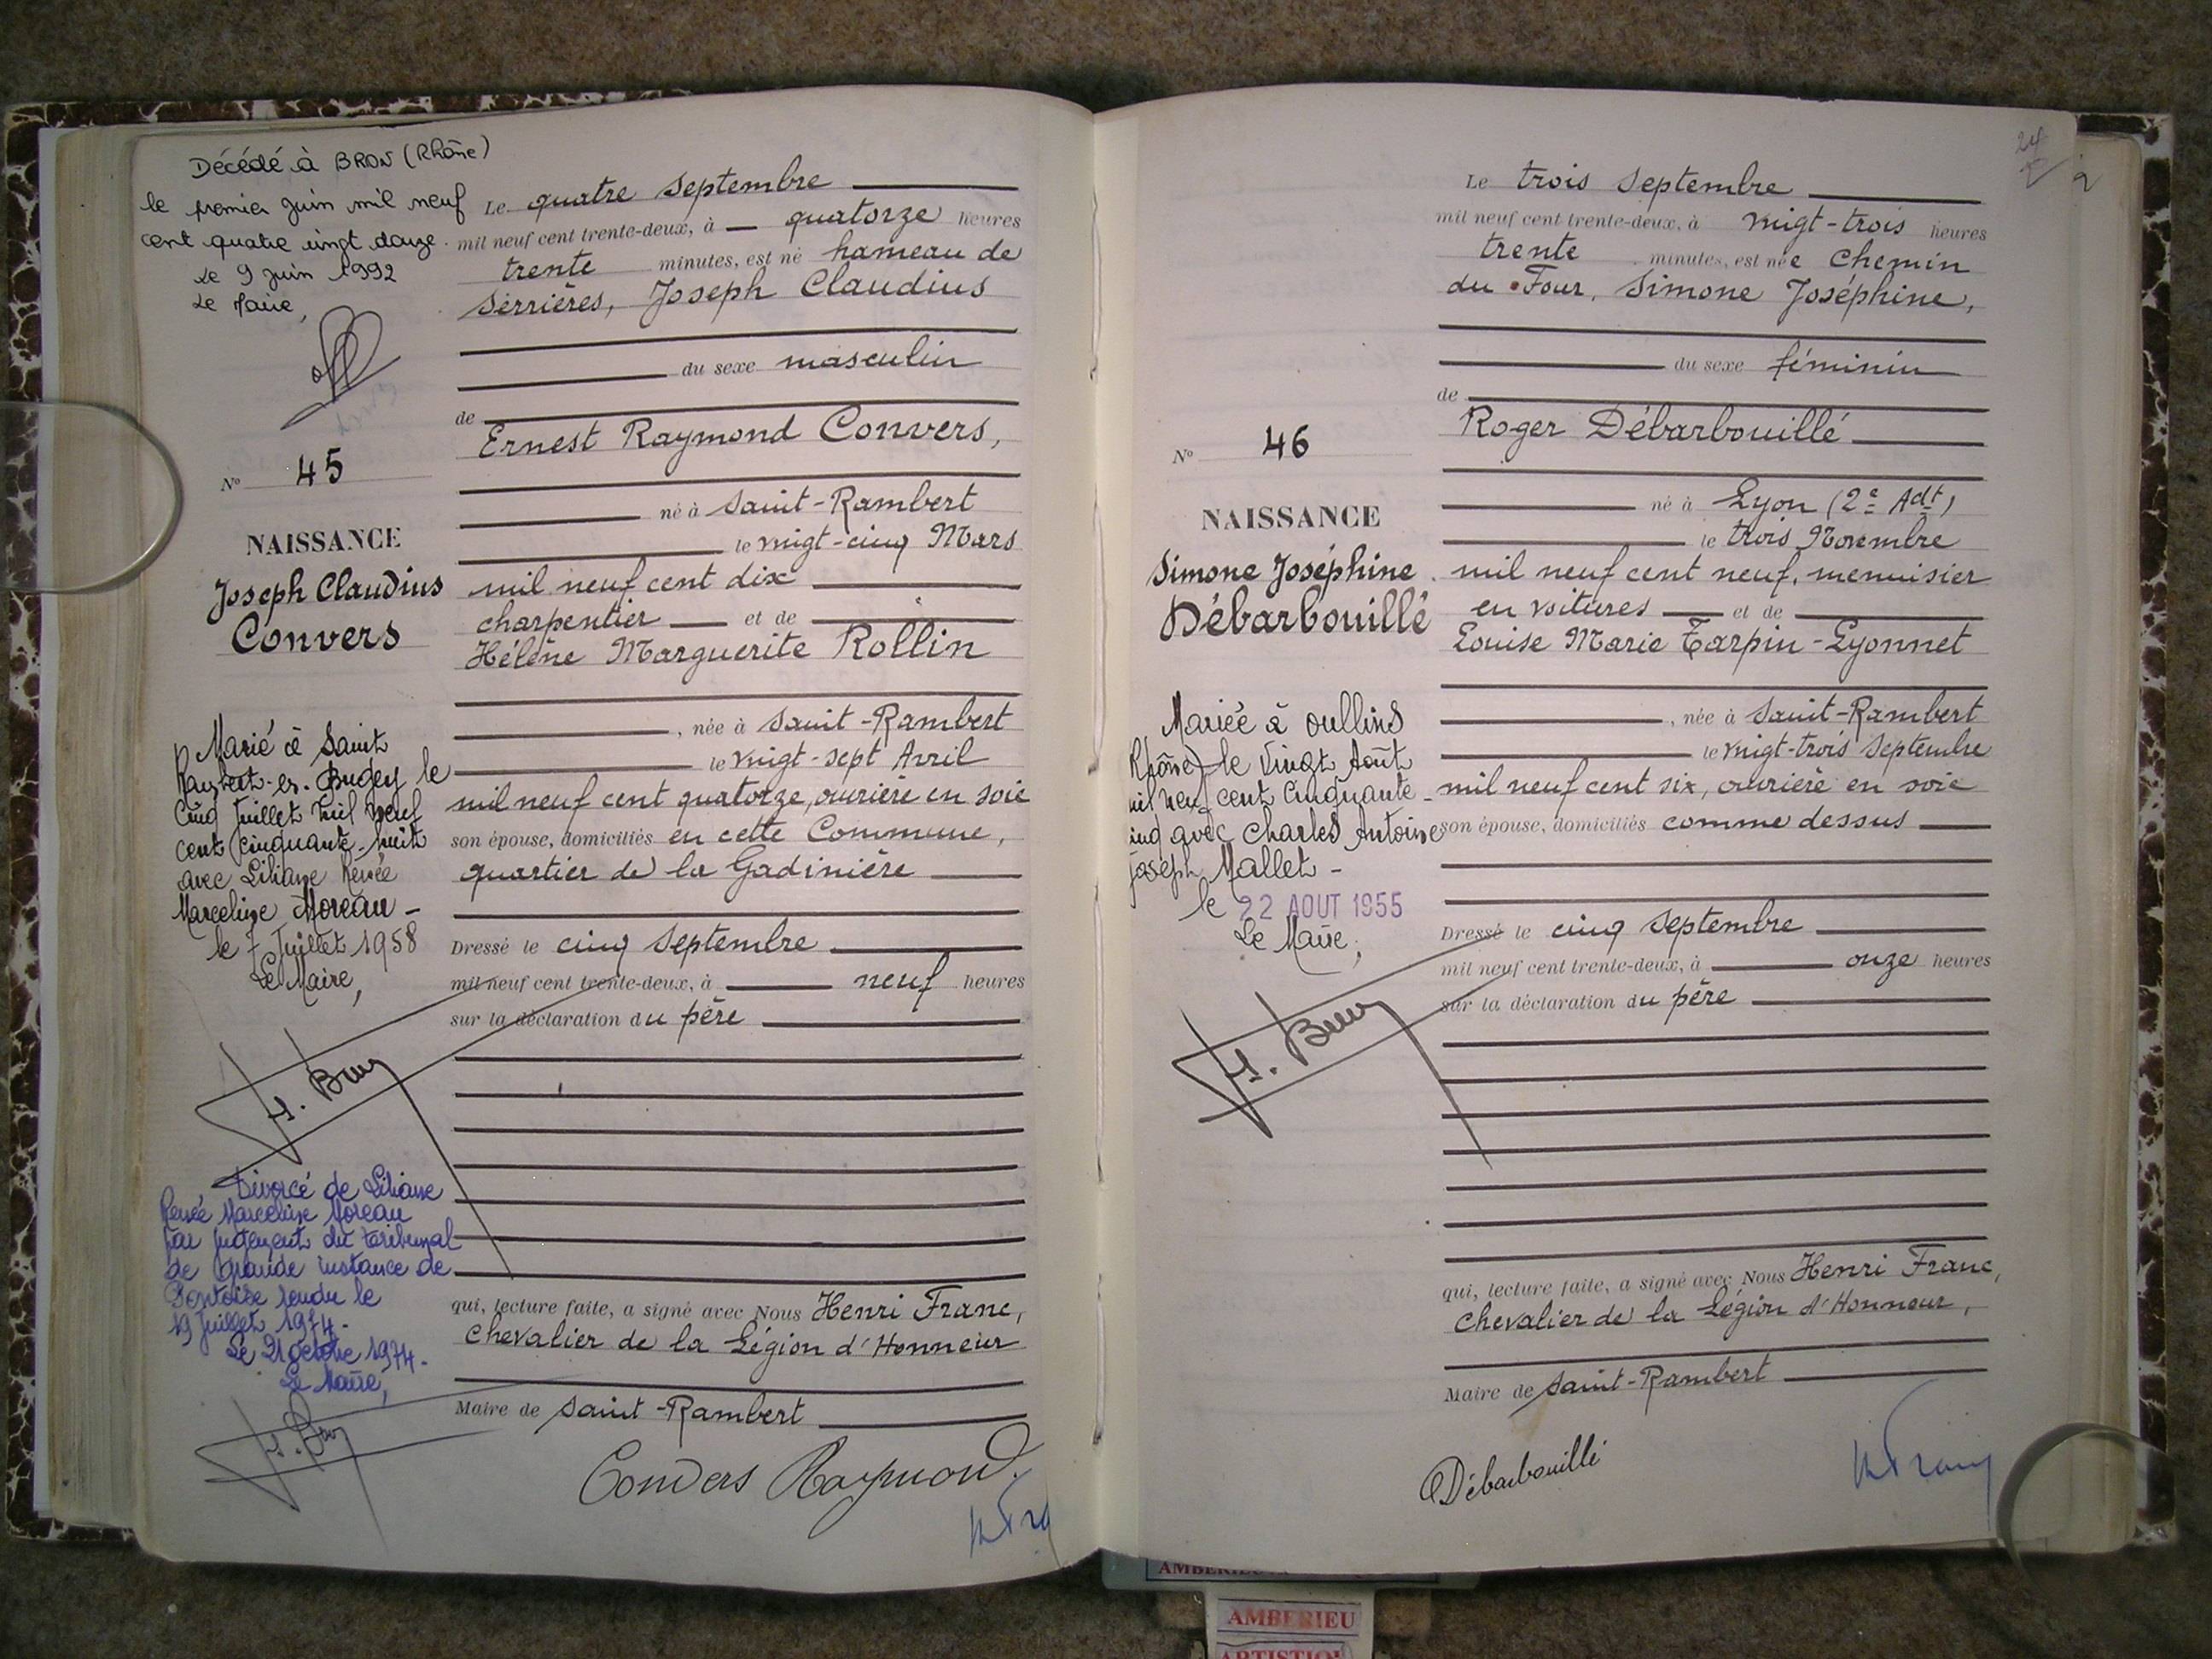 Décédé à BRON (Rhône)
le premier juin mil neuf
cent quatre vingt douze.
Le 9 juin 1992
Le Maire,
N° 45
NAISSANCE
Joseph Claudius
Convers
Marié à Saint
Rambert-en-Bugey le
cinq Juillet mil neuf
cent cinquante-huit
avec Liliane Renée
Marceline Moreau -
le 7 Juillet 1958
Le Maire,
H. Bruy
Divorcé de Liliane
Renée Marceline Moreau
par jugement du tribunal
de grande instance de
Pontoise rendu le
19 Juillet 1974.
Le 21 octobre 1974.
Le Maire,
Le quatre septembre
mil neuf cent trente-deux, à quatorze heures
trente minutes, est né hameau de
Serrières, Joseph Claudius
du sexe masculin
de
Ernest Raymond Convers,
né à Saint-Rambert
le vingt-cinq Mars
mil neuf cent dix
charpentier et de
Hélène Marguerite Rollin
, née à Saint-Rambert
le vingt-sept Avril
mil neuf cent quatorze, ouvrière en soie
son épouse, domiciliés en cette Commune,
quartier de la Gadinière
Dressé le cinq septembre
mil neuf cent trente-deux, à neuf heures
sur la déclaration du père
qui, lecture faite, a signé avec Nous Henri Franc,
Chevalier de la Légion d'Honneur
Maire de Saint-Rambert
Convers Raymond.
24
2
N° 46
NAISSANCE
Simone Joséphine
Débarbouillé
Mariée à Oullins
Rhône) le Vingt Août
mil neuf cent cinquante-
inq avec Charles Antoine
Joseph Mallet -
le 22 AOUT 1955
Le Maire,
H. Bruy
Le trois septembre
mil neuf cent trente-deux, à vingt-trois heures
trente minutes, est née Chemin
du Four, Simone Joséphine,
du sexe féminin
de
Roger Débarbouillé
né à Lyon (2e Adt)
le trois Novembre
mil neuf cent neuf, menuisier
en voitures et de
Louise Marie Tarpin-Lyonnet
, née à Saint-Rambert
le vingt-trois septembre
mil neuf cent six, ouvrière en soie
son épouse, domiciliés comme dessus
Dressé le cinq septembre
mil neuf cent trente-deux, à onze heures
sur la déclaration du père
qui, lecture faite, a signé avec Nous Henri Franc,
Chevalier de la Légion d'Honneur,
Maire de Saint-Rambert
Débarbouillé
AMBERIEU